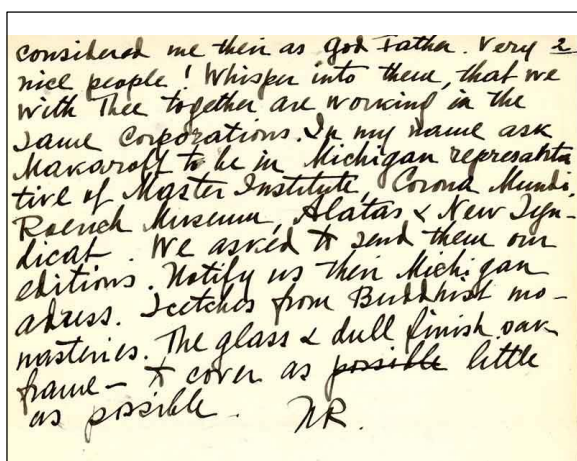 considered me then as God Father. Very 2
nice people! Whisper into them, that we
with Thee together are working in the
same Corporations. In my name ask
Makaroff to be in Michigan represanta
tive of Master Institute, Corona Mundi,
Roerich Museum, Alatas & New Syn-
dicat. We asked to send them our
editions. Notify us their Michigan
adress. Scetches from Buddhist mo-
nasteries. The glass & dull finish oak
frame – to cover as possible little
as possible. NR.